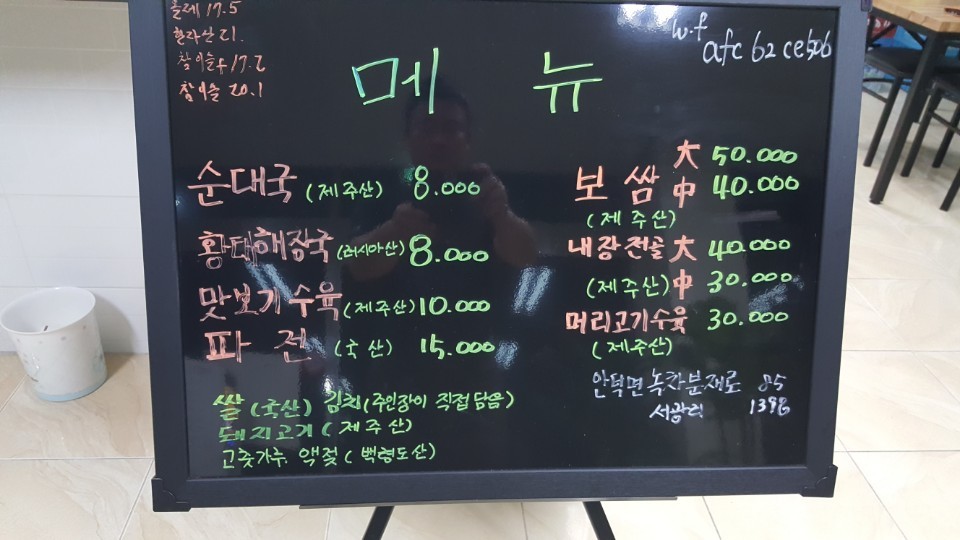 올레 17.5
한라산 21.
참이슬후 17.2
참이슬 20.1
w.f
afc 62 ceb06
메 뉴
순대국 (제주산) 8.000
황태해장국 (러시아산) 8.000
맛보기수육 (제주산) 10.000
파 전 (국산) 15.000
보쌈 大 50.000
中 40.000
(제주산)
내장전골 大 40.000
(제주산) 中 30.000
머리고기수육 30.000
(제주산)
쌀 (국산) 김치 (주인장이 직접 담음)
돼지고기 (제주산)
고춧가루 액젖 (백령도산)
안덕면 녹차분재로 85
서광리 1398